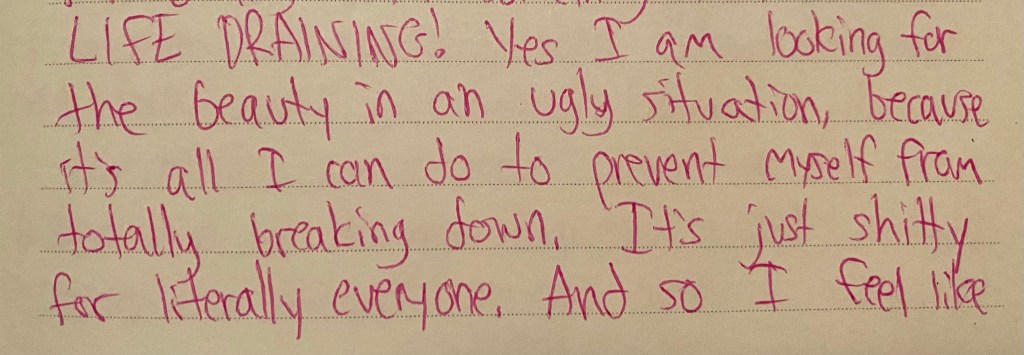 LIFE DRAINING! Yes I am looking for
the beauty in an ugly situation, because
it's all I can do to prevent myself from
totally breaking down. It's just shitty
for literally everyone. And so I feel like